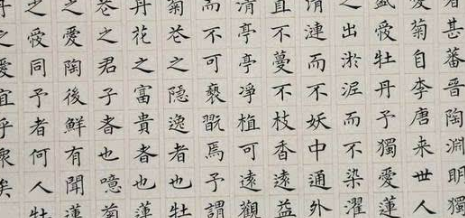 甚蕃晉陶淵明獨
愛菊自李唐來世人
盛愛牡丹予獨愛蓮
之出淤泥而不染濯
清漣而不妖中通外
直不蔓不枝香遠益
清亭亭淨植可遠觀
而不可褻翫焉予謂
菊花之隱逸者也牡
丹花之富貴者也蓮
花之君子者也噫菊
之愛陶後鮮有聞蓮
之愛同予者何人牡
丹之愛宜乎眾矣